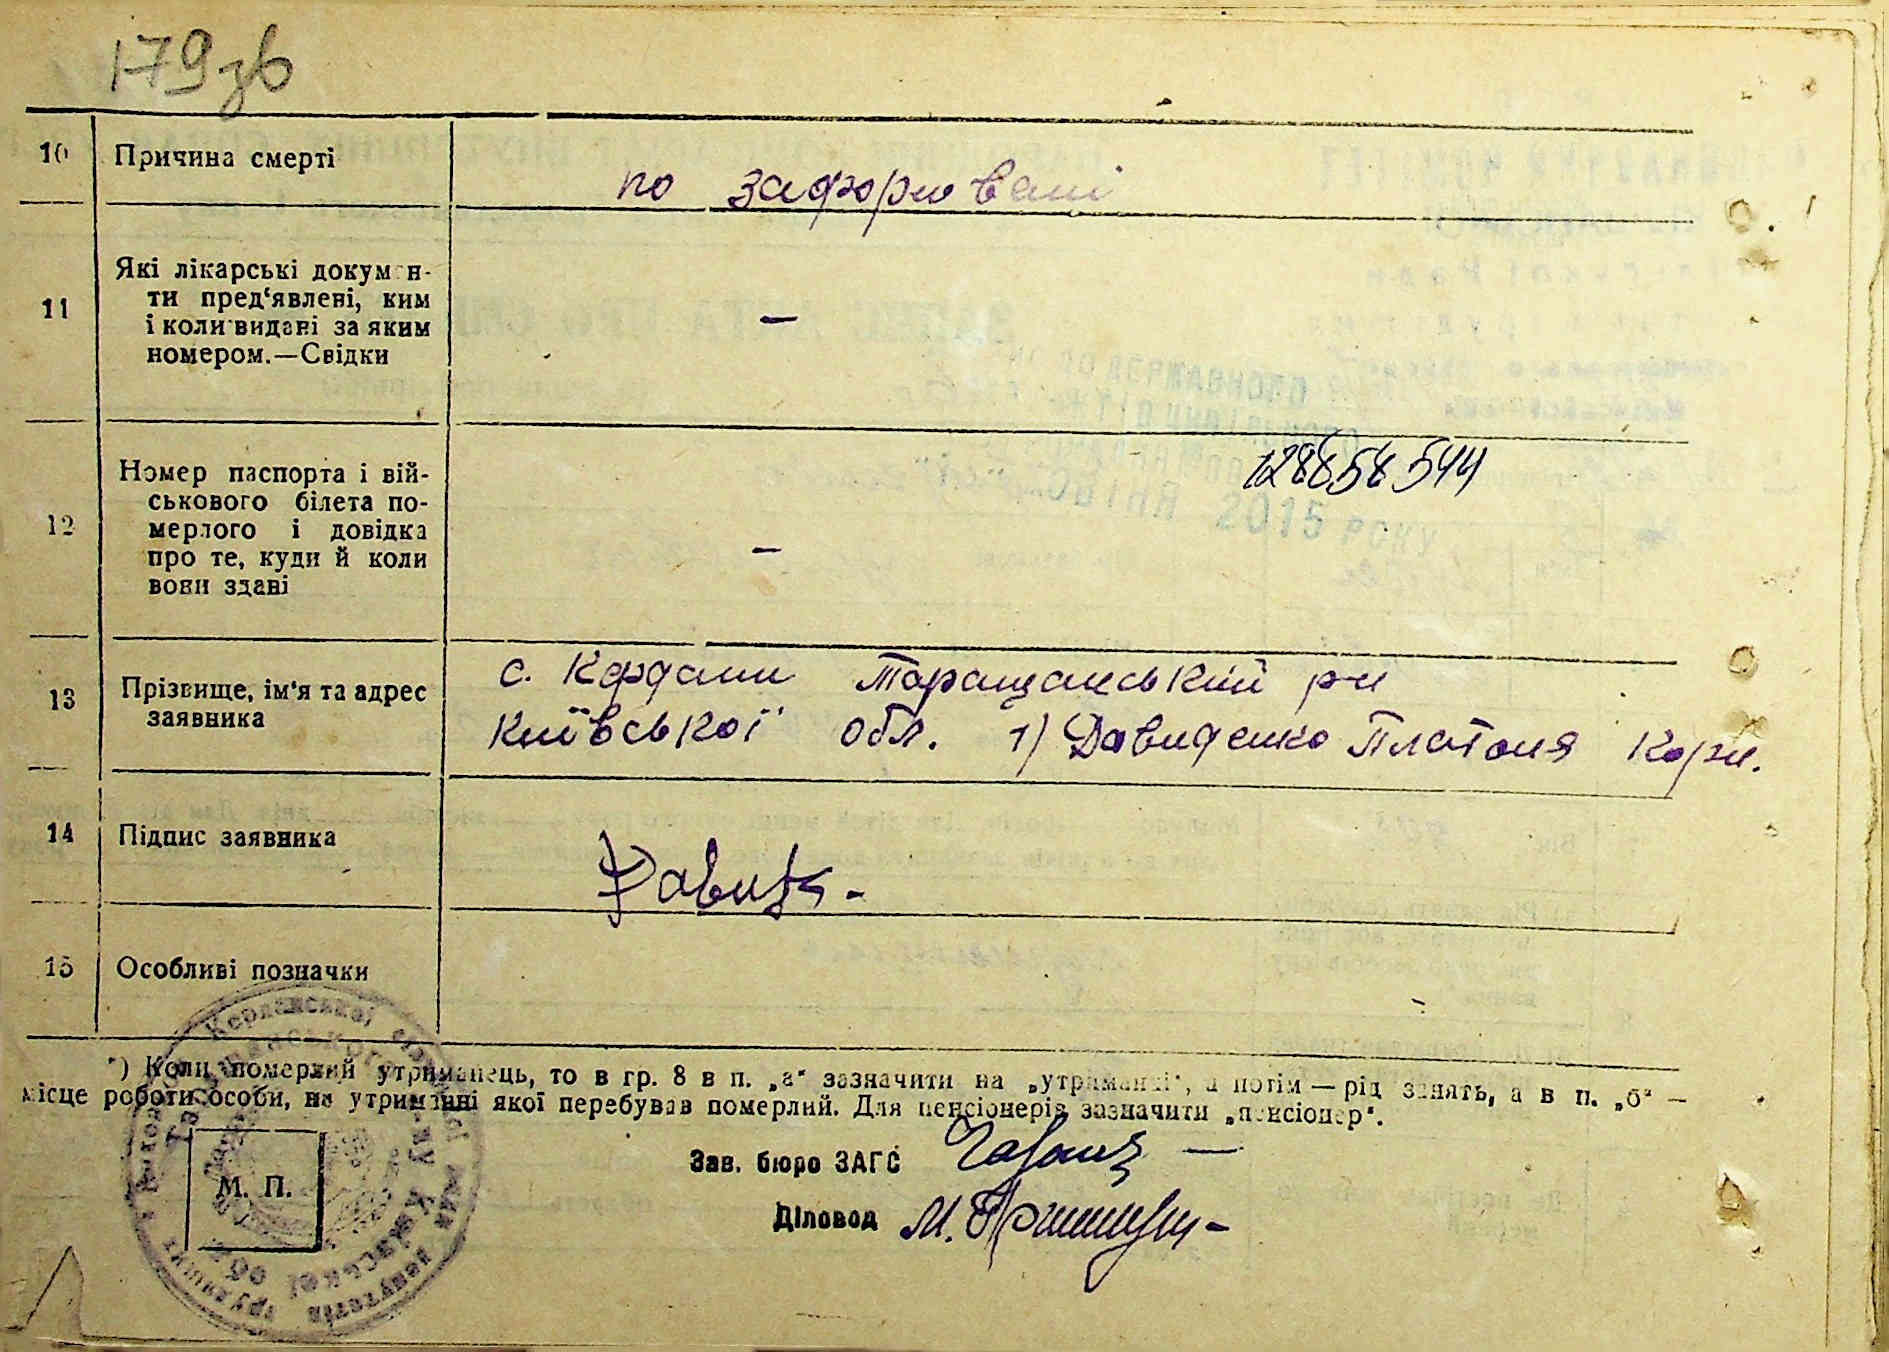 179 зв
10 Причина смерті
по
11 Які лікарські докумен-
ти пред'явлені, ким
і коли видані за яким
номером.—Свідки
—
12 Номер паспорта і вій-
ськового білета по-
мерлого і довідка
про те, куди й коли
вони здані
—
13 Прізвище, ім'я та адрес
заявника
с. Кердани Таращанський рн
Київської обл. 1) Давиденко Платоня Корн.
14 Підпис заявника
15 Особливі позначки
*) Коли померлий утриманець, то в гр. 8 в п. „а" зазначити на „утриманні", а потім — рід занять, а в п. „б" —
місце роботи особи, на утриманні якої перебував померлий. Для пенсіонерів зазначити „пенсіонер".
Зав. бюро ЗАГС
Діловод М.
М. П.
Керданської
Київської
2015 РОКУ